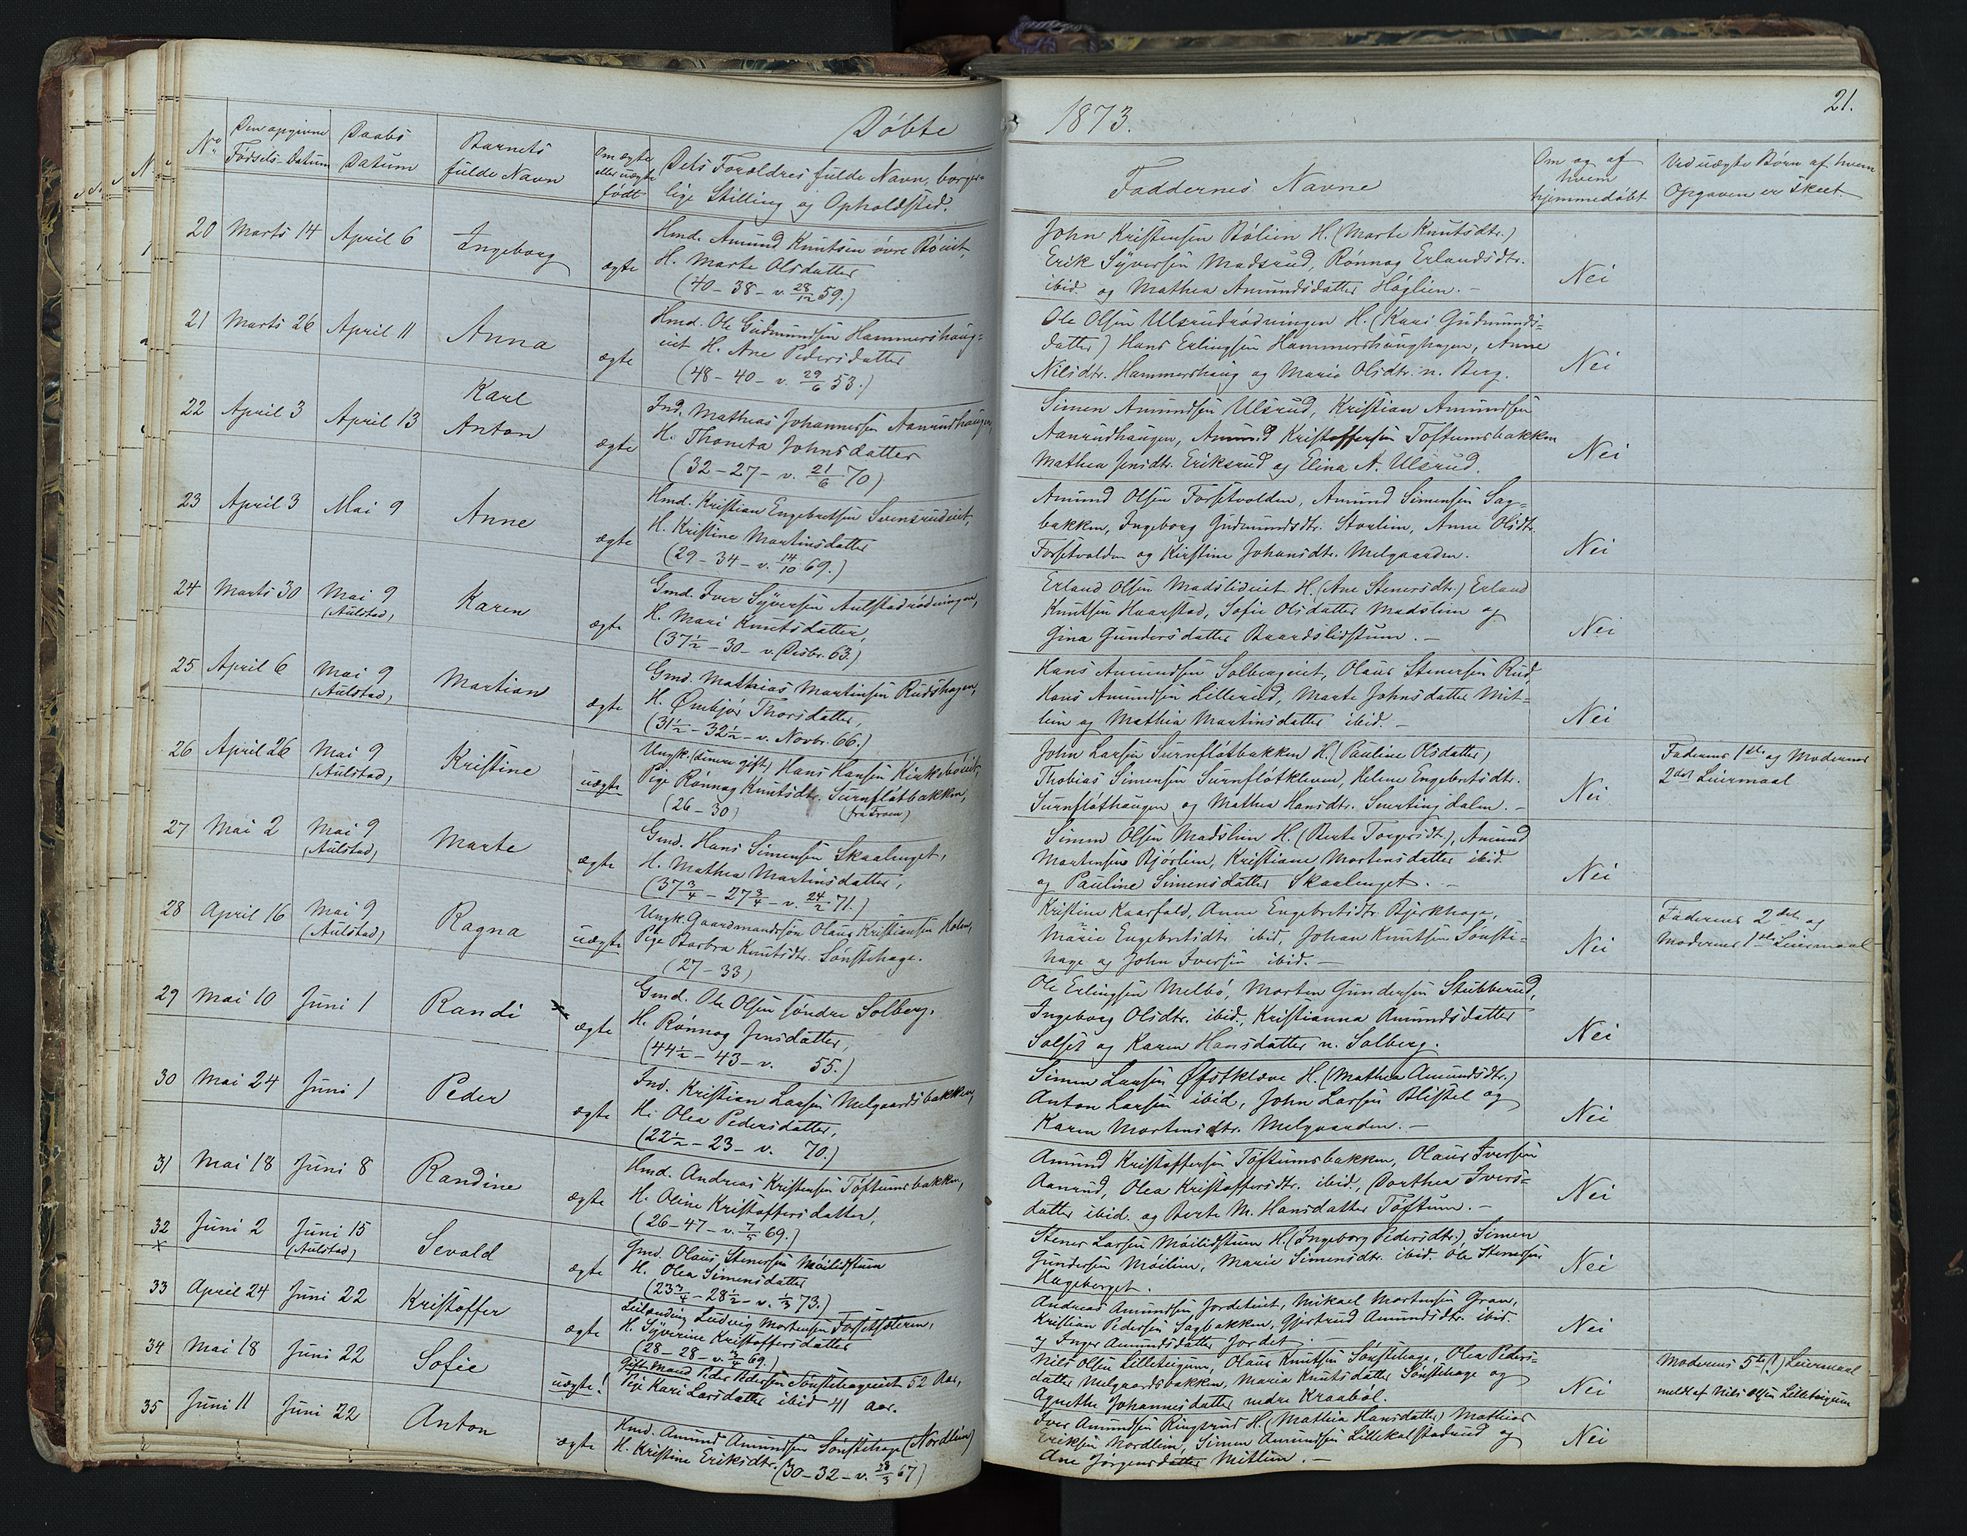 Døbte
No
Den opgivne
Fødsels-Datum
Daabs
Datum
Barnets
fulde Navn
Om ægte
eller uægte
født
Dets Forældres fulde Navn, borger-
lige Stilling og Opholdssted.
20 Marts 14 April 6 Ingeborg ægte
Hmd. Amund Knutsen øvre Bøeiet,
H. Marte Olsdatter
(40 - 38 - v. 28/12 59.)
21 Marts 26 April 11 Anna ægte
Hmd. Ole Gudmundsen Hammershaug-
eiet H. Ane Pedersdatter
(48 - 40 - v. 29/6 53.)
22 April 3 April 13 Karl
Anton ægte
Ind. Mathias Johannessen Aanrudhaugen,
H. Thoneta Johnsdatter
(32 - 27 - v. 21/6 70)
23 April 3 Mai 9 Anne ægte
Hmd. Kristian Engebretsen Svensrudeiet,
H. Kristine Martinsdatter
(29 - 34 - v. 14/10 69.)
24 Marts 30 Mai 9
(Aulstad,) Karen ægte
Gmd. Iver Syversen Aulstadrødningen,
H. Mari Knutsdatter,
(37½ - 30 - v. Desbr. 63.)
25 April 6 Mai 9
(Aulstad,) Martian ægte
Gmd. Mathias Martinsen Rudshagen,
H. Ømbjør Thorsdatter,
(31½ - 32½ - v. Novbr. 66.)
26 April 26 Mai 9
(Aulstad,) Kristine uægte
Ungk. (senere gift) Hans Hansen Kirkebøeiet,
Pige Rønnog Knutsdtr. Surnfløtbakken,
(26 - 30) (fra Froen)
27 Mai 2 Mai 9
(Aulstad,) Marte ægte
Gmd. Hans Simensen Skaalenget,
H. Mathea Martinsdatter,
(37¾ - 27¾ - v. 24/2 71.)
28 April 16 Mai 9
(Aulstad,) Ragna uægte
Ungk. Gaardmandssøn Olaus Kristiansen Holen,
Pige Barbra Knutsdtr. Sønstehage.
(27 - 33)
29 Mai 10 Juni 1 Randi ægte
Gmd. Ole Olsen søndre Solberg,
H. Rønnog Jensdatter,
(44½ - 43 - v. 55.)
30 Mai 24 Juni 1 Peder ægte
Ind. Kristian Larsen Melgaardsbakken,
H. Olea Pedersdatter,
(22½ - 23 - v. 70.)
31 Mai 18 Juni 8 Randine ægte
Hmd. Andreas Kristensen Tøftumsbakken,
H. Oline Kristoffersdatter,
(26 - 47 - v. 7/5 69.)
32 Juni 2 Juni 15
(Aulstad,) Sevald ægte
Gmd. Olaus Stenersen Møilidstuen
H. Olea Simensdatter
(23¾ - 28½ - v. 1/3 73.)
33 April 24 Juni 22 Kristoffer ægte
Leilænding Ludvig Mortensen Forsetsæteren,
H. Syverine Kristoffersdatter
(28 - 28 - v. 3/4 69.)
34 Mai 18 Juni 22 Sofie uægte!
Gift Mand Peder Pedersen Sønstehageeiet 52 Aar,
Pige Kari Larsdatter ibid 41 aar.
35 Juni 11 Juni 22 Anton ægte
Hmd. Amund Amundsen Sønstehage (Nordlien)
H. Kristine Eriksdtr. (30 - 32 - v. 28/3 67)
1873.
21.
Faddernes Navne
Om og af
hvem
hjemmedøbt
Ved uægte Børn af hvem
Opgaven er skeet.
John Kristensen Bølien H. (Marte Knutsdtr.)
Erik Syversen Madsrud, Rønnog Erlandsdtr.
ibid og Mathea Amundsdatter Høglien. - Nei
Ole Olsen Ulsrudrødningen H. (Kari Gudmunds-
datter) Hans Erlingsen Hammershaughagen, Anne
Nilsdtr. Hammershaug og Marie Olsdtr. n. Berg. Nei
Simen Amundsen Ulsrud, Kristian Amundsen
Aanrudhaugen, Amund Kristoffersen Toftumsbakken
Mathea Jensdtr. Eriksrud og Elina A. Ulsrud. Nei
Amund Olsen Forsetvolden, Amund Simensen Sag-
bakken, Ingeborg Gudmundsdtr. Storlien, Anne Olsdtr.
Forsetvolden og Kirstine Johansdtr. Melgaarden. Nei
Erland Olsen Madslideiet H. (Ane Stenersdtr.) Erland
Knutsen Haarstad, Sofie Olsdatter Madslein og
Gina Gundersdatter Baardslidstuen. - Nei
Hans Amundsen Solbergeiet, Olaus Stenersen Rud,
Hans Amundsen Lillerud, Marte Johnsdatter Mit-
lien og Mathea Martinsdatter ibid. - Nei
John Larsen Surnfløtbakken H. (Pauline Olsdatter)
Thobias Simensen Surnfløtkleven, Helene Engebretsdtr.
Surnfløthaugen og Mathea Hansdtr. Svertingdalen. - Nei
Faderens 1ste og Moderens
2det Leiermaal
Simen Olsen Madslien H. (Berte Torgersdtr.), Amund
Martensen Bjørlien, Kristiane Mortensdatter ibid
og Pauline Simensdatter Skaalenget. - Nei
Kristine Kaarfald, Anne Engebretsdtr. Bjerkhage,
Marie Engebretsdtr. ibid, Johan Knutsen Sønste-
hage og John Iversen ibid. - Nei
Faderens 2det og
Moderens 1ste Leiermaal
Ole Erlingsen Melbø, Morten Gundersen Stubberud,
Ingeborg Olsdtr. ibid., Kristianna Amundsdatter
Solset og Karen Hansdatter n. Solberg. Nei
Simen Larsen Øfstkleve H. (Mathea Amundsdtr.)
Anton Larsen ibid, John Larsen Blistel og
Karen Mortensdtr. Melgaarden. - Nei
Amund Kristoffersen Toftumsbakken, Olaus Iversen
Aanrud, Olea Kristoffersdtr. ibid., Dorthea Ivers-
datter ibid. og Berte M. Hansdatter Tøftum. - Nei
Stener Larsen Møilidstuen H. (Ingeborg Pedersdtr.) Simen
Gundersen Møilien, Marie Simensdtr. ibid. Ole Stenersen
Hageberget. Nei
Andreas Amundsen Jordeteiet, Mikael Mortensen Gran,
Kristian Pedersen Sagbakken, Gjertrud Amundsdtr. ibid.
og Inger Amundsdatter Jordet. Nei
Nils Olsen Lilleteigum, Olaus Knutsen Sønstehage, Olea Peders-
datter Melgaardsbakken, Marie Knutsdatter Sønstehage og
Agnethe Johannesdatter nedre Kraabøl. Nei
Moderens 5te(!) Leiermaal
meldt af Nils Olsen Lilleteigum
Iver Amundsen Ringsrud H. (Mathea Hansdatter) Mathias
Eriksen Nordlien, Simen Amundsen Lillekalstadrud og
Ane Jørgensdatter Mitlien. - Nei